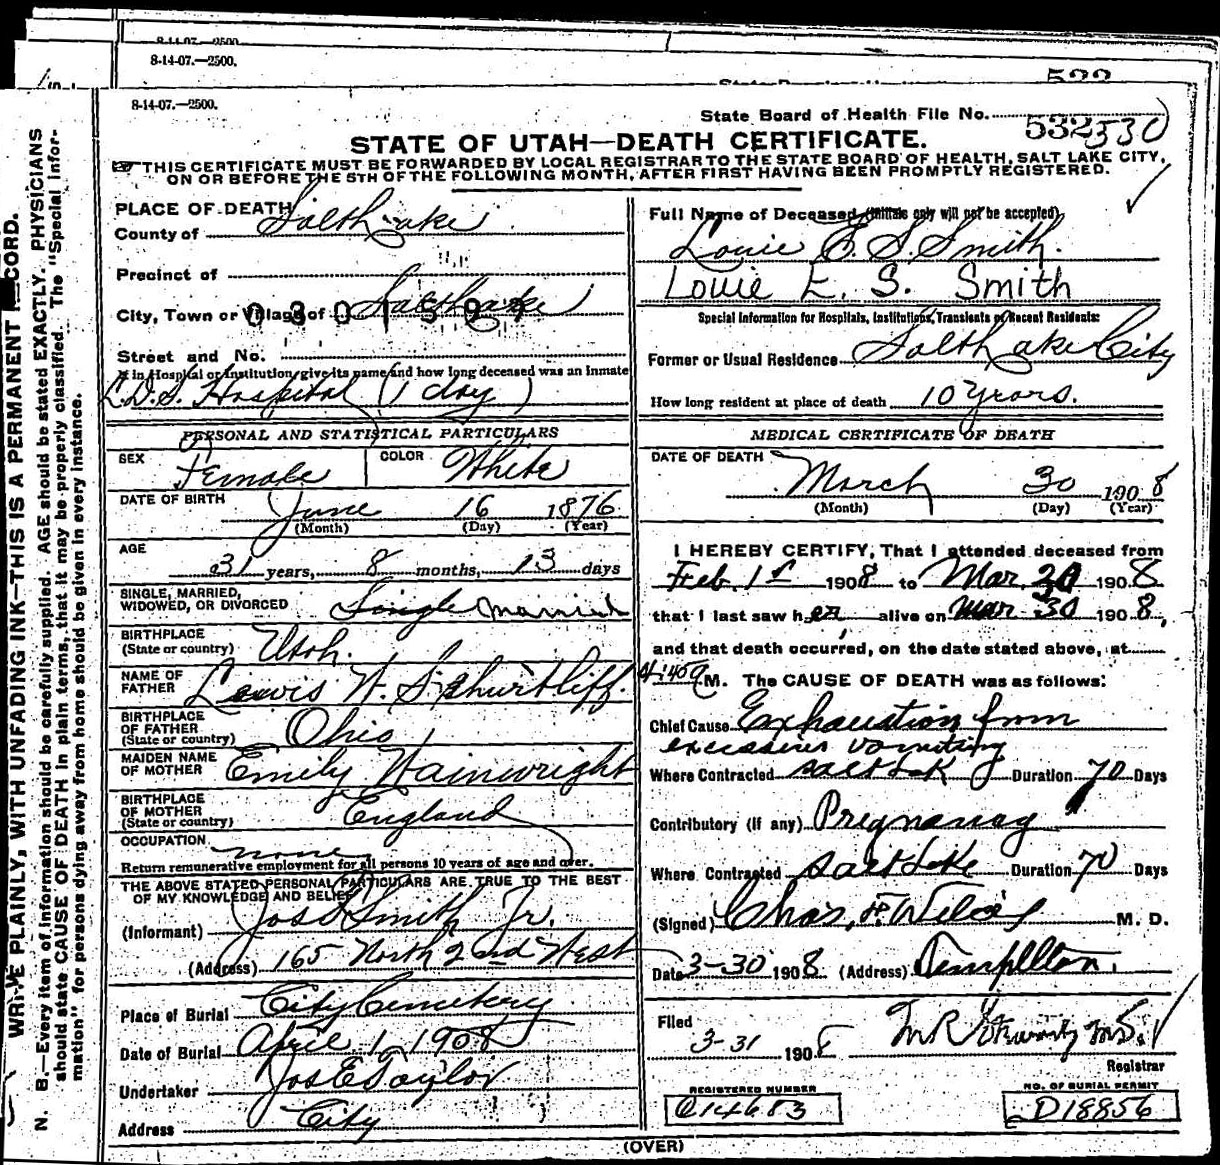 8-14-07.—2500.
8-14-07.—2500.
522
8-14-07.—2500.
State Board of Health File No. 532 530
STATE OF UTAH—DEATH CERTIFICATE.
THIS CERTIFICATE MUST BE FORWARDED BY LOCAL REGISTRAR TO THE STATE BOARD OF HEALTH, SALT LAKE CITY,
ON OR BEFORE THE 5TH OF THE FOLLOWING MONTH, AFTER FIRST HAVING BEEN PROMPTLY REGISTERED.
WRITE PLAINLY, WITH UNFADING INK—THIS IS A PERMANENT RECORD.
N. B.—Every item of information should be carefully supplied. AGE should be stated EXACTLY. PHYSICIANS
should state CAUSE OF DEATH in plain terms, that it may be properly classified. The "Special Infor-
mation" for persons dying away from home should be given in every instance.
PLACE OF DEATH
County of Salt Lake
Precinct of
City, Town or Village of Salt Lake
0301591
Street and No.
If in Hospital or Institution, give its name and how long deceased was an inmate
L.D.S. Hospital (1 day)
PERSONAL AND STATISTICAL PARTICULARS
SEX Female COLOR White
DATE OF BIRTH June 16 1876
(Month) (Day) (Year)
AGE
31 years, 8 months, 13 days
SINGLE, MARRIED,
WIDOWED, OR DIVORCED Single Married
BIRTHPLACE
(State or country) Utah.
NAME OF
FATHER Lewis W. Shurtliff.
BIRTHPLACE
OF FATHER
(State or country) Ohio
MAIDEN NAME
OF MOTHER Emily Wainwright
BIRTHPLACE
OF MOTHER
(State or country) England
OCCUPATION none
Return remunerative employment for all persons 10 years of age and over.
THE ABOVE STATED PERSONAL PARTICULARS ARE TRUE TO THE BEST
OF MY KNOWLEDGE AND BELIEF
(Informant) Jos F Smith Jr.
(Address) 165 North 2nd West
Place of Burial City Cemetery
Date of Burial April 1, 1908
Undertaker Jos E Taylor
Address City
Full Name of Deceased (Initials only will not be accepted)
Louie E. S. Smith.
Louie E. S. Smith
Special Information for Hospitals, Institutions, Transients or Recent Residents:
Former or Usual Residence Salt Lake City
How long resident at place of death 10 years.
MEDICAL CERTIFICATE OF DEATH
DATE OF DEATH
March 30 1908
(Month) (Day) (Year)
I HEREBY CERTIFY, That I attended deceased from
Feb. 1st 1908 to Mar. 30 1908
that I last saw her alive on Mar 30 1908,
and that death occurred, on the date stated above, at
M. The CAUSE OF DEATH was as follows:
Chief Cause Exhaustion from
excessive vomiting
Where Contracted Salt Lk Duration 70 Days
Contributory (if any) Pregnancy
Where Contracted Salt Lake Duration 70 Days
(Signed) Chas. M. D.
Date 3-30 1908 (Address) Templeton.
Filed
3-31 1908
Registrar
REGISTERED NUMBER
C14683
NO. OF BURIAL PERMIT
D18856
(OVER)